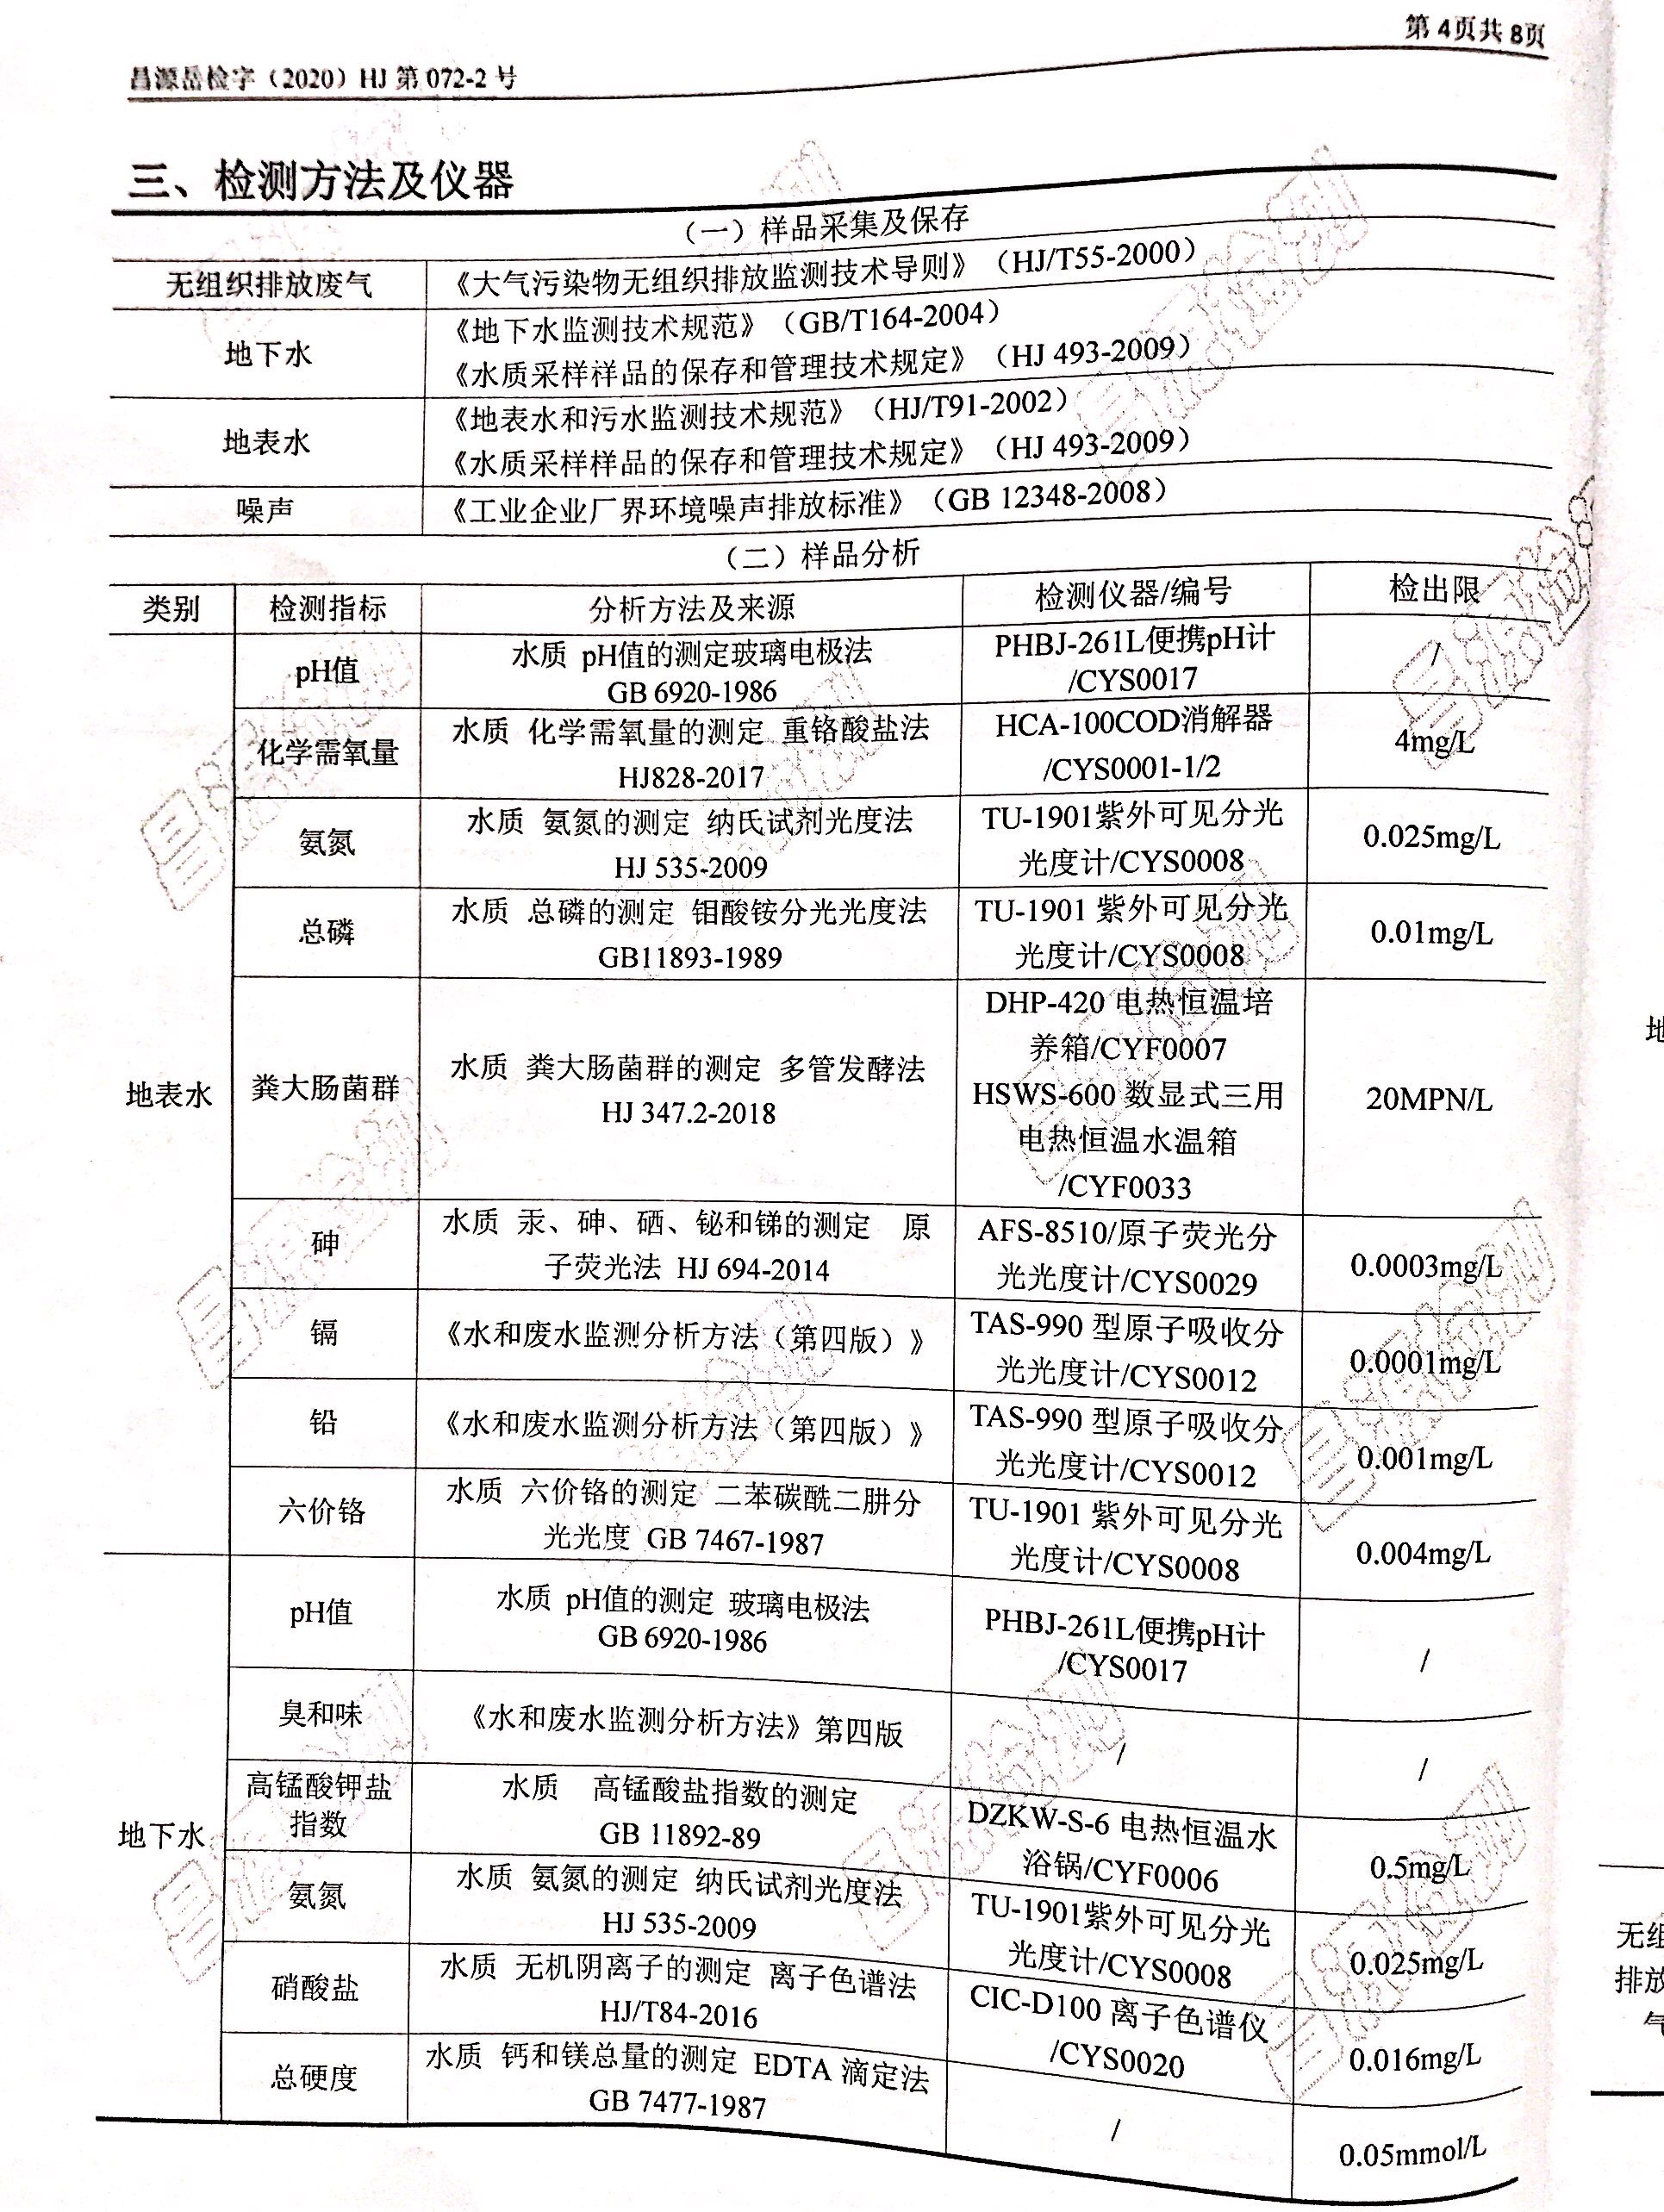 第 4页共 8页
昌源岳检字（2020）HJ 第 072-2 号
三、检测方法及仪器
（一）样品采集及保存
无组织排放废气
《大气污染物无组织排放监测技术导则》（HJ/T55-2000）
地下水
《地下水监测技术规范》（GB/T164-2004）
《水质采样样品的保存和管理技术规定》（HJ 493-2009）
地表水
《地表水和污水监测技术规范》（HJ/T91-2002）
《水质采样样品的保存和管理技术规定》（HJ 493-2009）
噪声
《工业企业厂界环境噪声排放标准》（GB 12348-2008）
（二）样品分析
类别 检测指标 分析方法及来源 检测仪器/编号 检出限
地表水
pH值
水质 pH值的测定玻璃电极法
GB 6920-1986
PHBJ-261L便携pH计
/CYS0017
/
化学需氧量
水质 化学需氧量的测定 重铬酸盐法
HJ828-2017
HCA-100COD消解器
/CYS0001-1/2
4mg/L
氨氮
水质 氨氮的测定 纳氏试剂光度法
HJ 535-2009
TU-1901紫外可见分光
光度计/CYS0008
0.025mg/L
总磷
水质 总磷的测定 钼酸铵分光光度法
GB11893-1989
TU-1901 紫外可见分光
光度计/CYS0008
0.01mg/L
粪大肠菌群
水质 粪大肠菌群的测定 多管发酵法
HJ 347.2-2018
DHP-420 电热恒温培
养箱/CYF0007
HSWS-600 数显式三用
电热恒温水温箱
/CYF0033
20MPN/L
砷
水质 汞、砷、硒、铋和锑的测定 原
子荧光法 HJ 694-2014
AFS-8510/原子荧光分
光光度计/CYS0029
0.0003mg/L
镉
《水和废水监测分析方法（第四版）》
TAS-990 型原子吸收分
光光度计/CYS0012
0.0001mg/L
铅
《水和废水监测分析方法（第四版）》
TAS-990 型原子吸收分
光光度计/CYS0012
0.001mg/L
六价铬
水质 六价铬的测定 二苯碳酰二肼分
光光度 GB 7467-1987
TU-1901 紫外可见分光
光度计/CYS0008
0.004mg/L
地下水
pH值
水质 pH值的测定 玻璃电极法
GB 6920-1986
PHBJ-261L便携pH计
/CYS0017
/
臭和味
《水和废水监测分析方法》第四版
/
/
高锰酸钾盐
指数
水质 高锰酸盐指数的测定
GB 11892-89
DZKW-S-6 电热恒温水
浴锅/CYF0006
0.5mg/L
氨氮
水质 氨氮的测定 纳氏试剂光度法
HJ 535-2009
TU-1901紫外可见分光
光度计/CYS0008
0.025mg/L
硝酸盐
水质 无机阴离子的测定 离子色谱法
HJ/T84-2016
CIC-D100 离子色谱仪
/CYS0020
0.016mg/L
总硬度
水质 钙和镁总量的测定 EDTA 滴定法
GB 7477-1987
/
0.05mmol/L
地
无组
排放
气